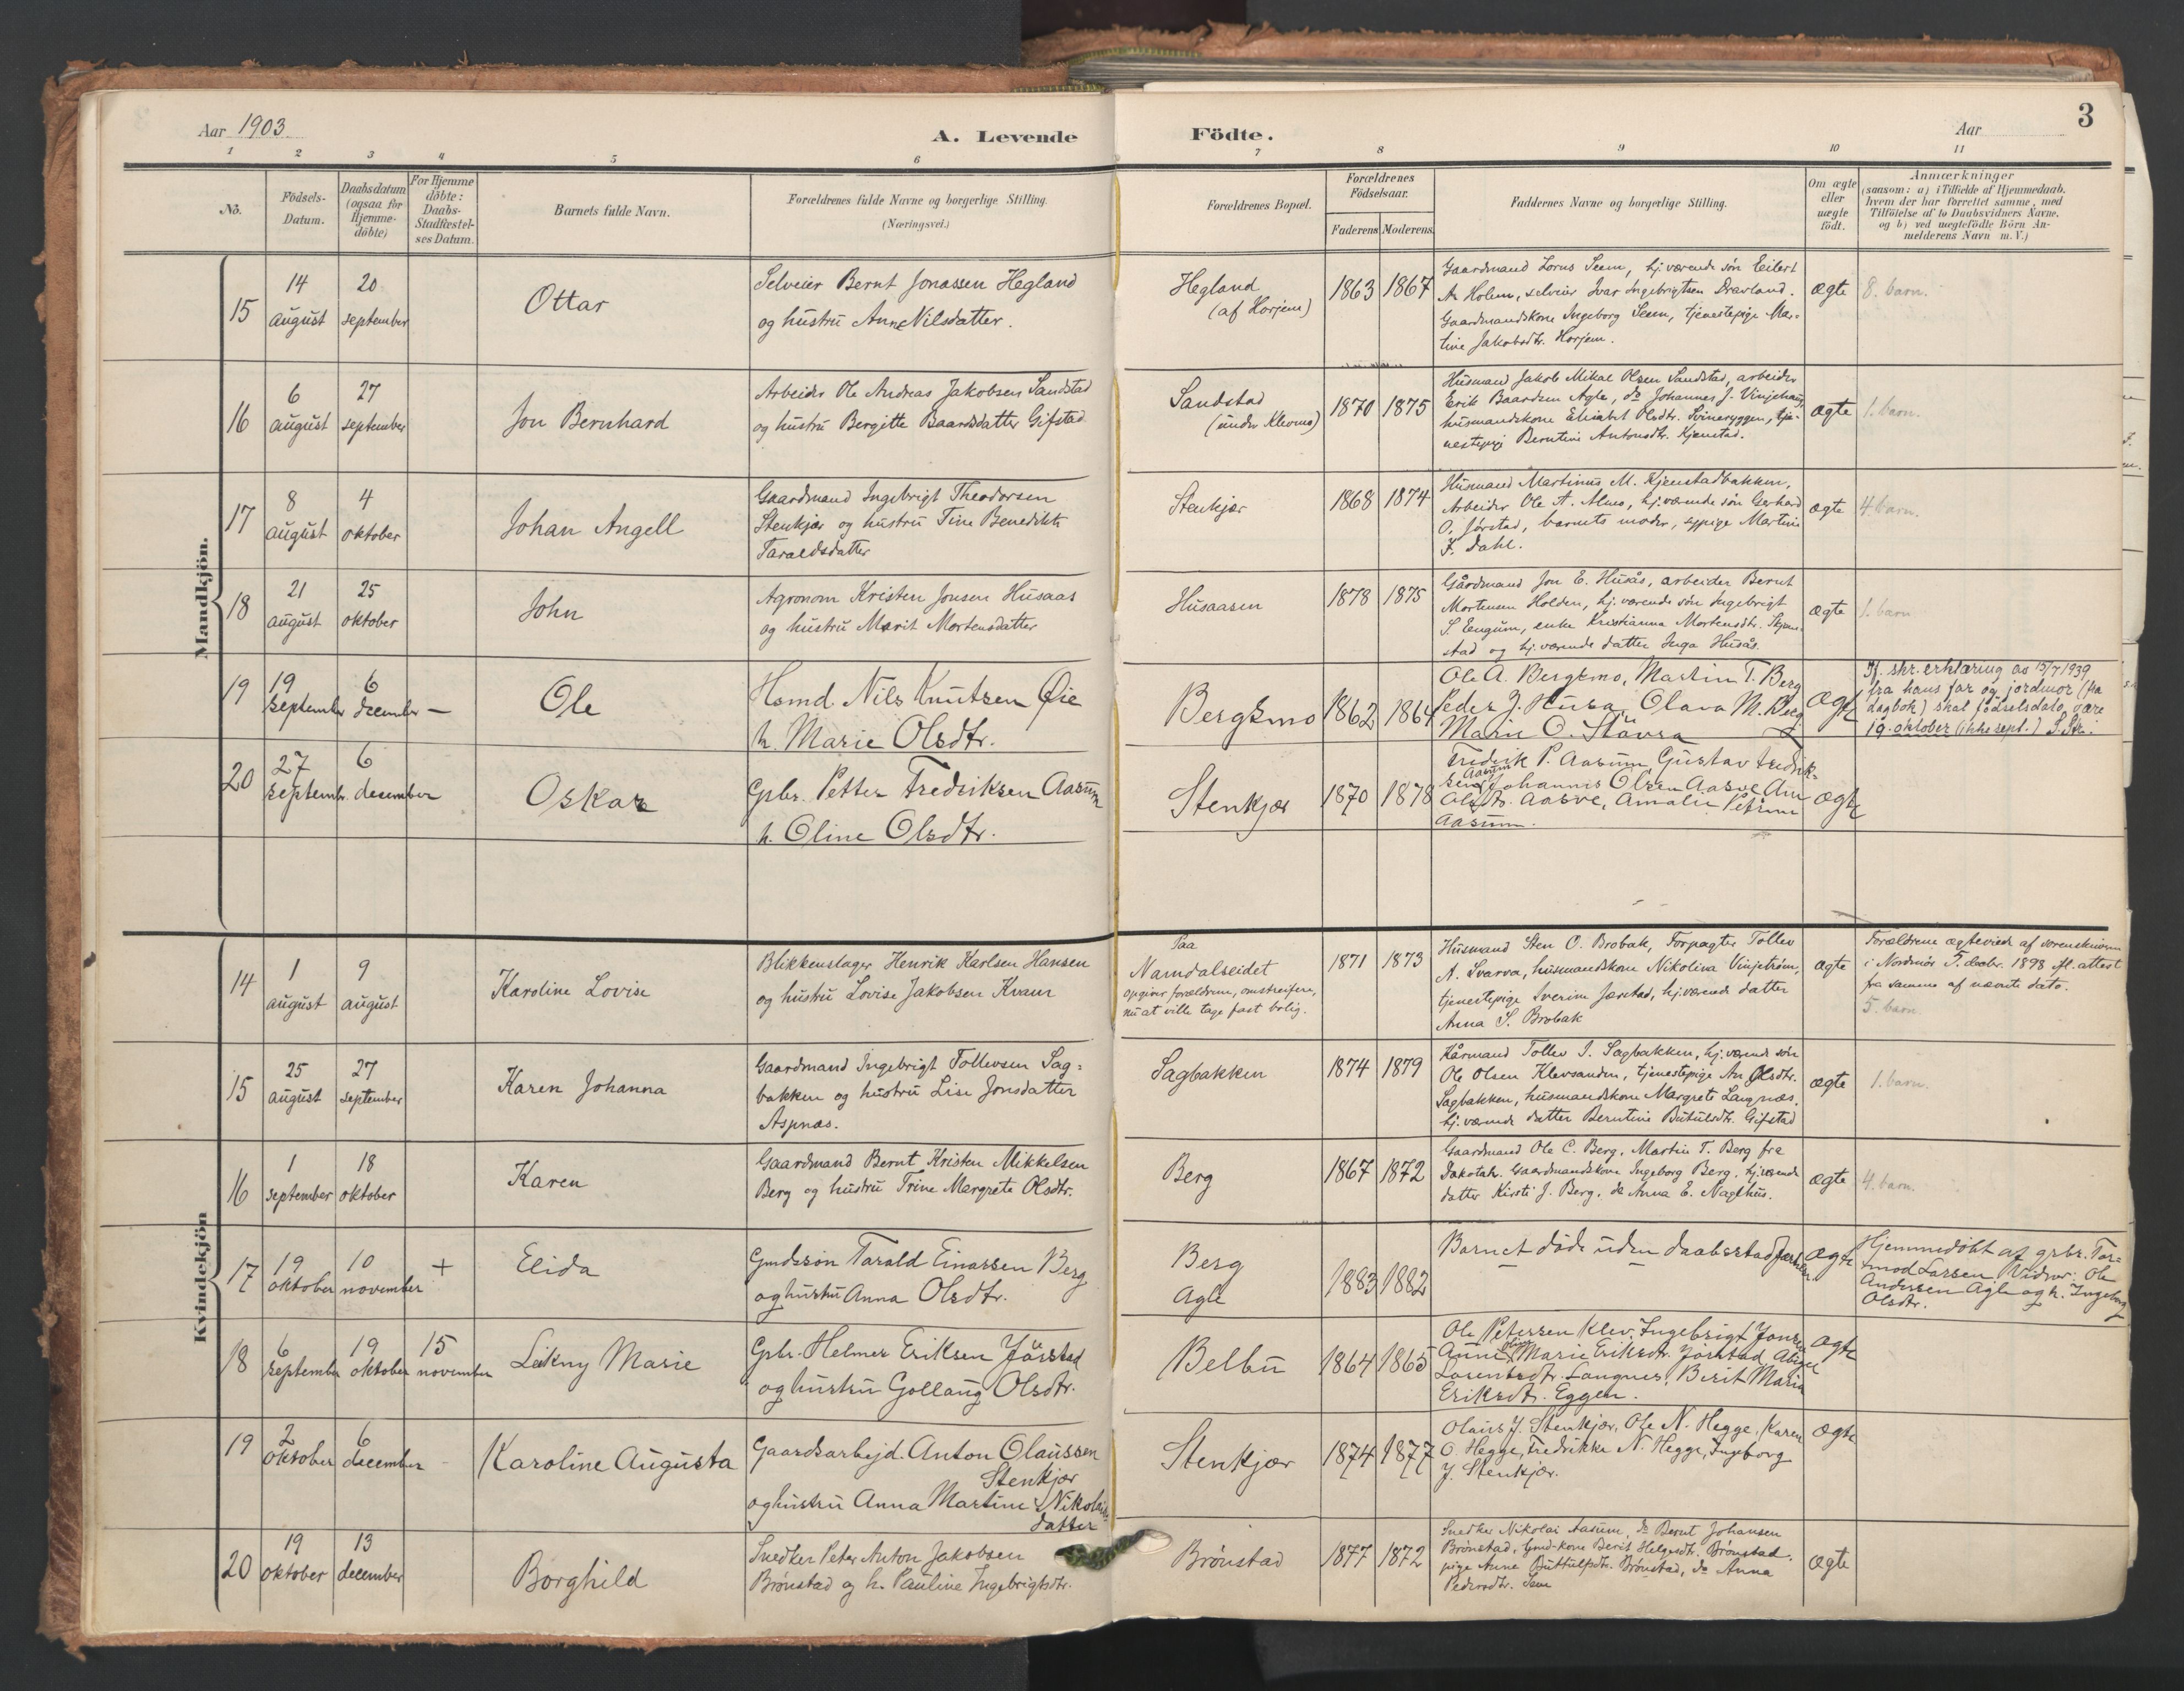 Aar 1903
A. Levende Födte.
Aar
3
1 2 3 4 5 6 7 8 9 10 11
No.
Födsels-
Datum.
Daabsdatum
(ogsaa for
Hjemme-
döbte)
For Hjemme
döbte:
Daabs-
Stadfæstel-
ses Datum.
Barnets fulde Navn.
Forældrenes fulde Navne og borgerlige Stilling.
(Næringsvei.)
Forældrenes Bopæl.
Forældrenes
Födselsaar.
Faderens Moderens
Faddernes Navne og borgerlige Stilling.
Om ægte
eller
uægte
födt.
Anmærkninger
(saasom: a) i Tilfælde af Hjemmedaab.
hvem der har forrettet samme, med
Tilföielse af to Daabsvidners Navne.
og b) ved uægtefödte Börn An-
melderens Navn m.V.)
Mandkjön.
15
14
august
20
september
Ottar
Selveier Bernt Jonassen Hegland
og hustru Anne Nilsdatter.
Hegland
(af Horjem)
1863 1867
Gaardmand Lorns Seem, hj.værende søn Eilert
A. Holem, selveier Ivar Ingebrigtsen Dravland.
Gaardmandskone Ingeborg Seem, tjenestepige Mar-
tine Jakobsdtr. Horjem.
ægte
8. barn.
16
6
august
27
september
Jon Bernhard
Arbeider Ole Andreas Jakobsen Sandstad
og hustru Bergitte Baardsdatter Gifstad
Sandstad
(under Klevmo)
1870 1875
Husmand Jakob Mikal Olsen Sandstad, arbeider
Erik Baardsen Agle, do Johannes J. Vinjehaug,
husmandskone Elisabet Olsdtr. Svineryggen, tje-
nestepig Berntine Antonsdtr. Kjenstad.
ægte
1. barn.
17
8
august
4
oktober
Johan Angell
Gaardmand Ingebrigt Theodorsen
Stenkjær og hustru Tine Benedikte
Taraldsdatter
Stenkjær
1868 1874
Husmand Martinus M. Kjenstadbakken,
Arbeider Ole A. Moen, hj.værende søn Gerhard
O. Jørstad, barnets moder, sypige Martine
F. Dahl.
ægte
4. barn.
18
21
august
25
oktober
John
Agronom Kristen Jonsen Husaas
og hustru Marit Mortensdatter
Husaasen
1878 1875
Gårdmand Jon E. Husås, arbeider Bernt
Mortensen Holden, hj.værende søn Ingebrigt
S. Engum, enke Kristianna Mortensdtr. Stjern-
stad og hj.værende datter Inga Husås.
ægte
1. barn
19
19
september
6
december
—
Ole
Hsmd. Nils Knutsen Øie
h. Marie Olsdtr.
Bergsmo
1862 1864
Ole A. Bergsmo, Martin T. Berg
Peder J. Husa, Olava M. Berg
Marie O. Stavra
ægte
Jf. skr. erklæring av 15/7 1939
fra hans far og jordmor (fra
dagbok) skal fødselsdato være
19. oktober (ikke sept.)
20
27
septembr.
6
december
Oskar
Gpbr. Petter Fredriksen Aasum
h. Oline Olsdtr.
Stenkjær
1870 1878
Fredrik P. Aasum Gustav Fredrik-
sen Aasum Johannes Olsen Aasve
Aasve, Amalie Petrine
Aasum.
ægte
Kvindekjön
14
1
august
9
august
Karoline Lovise
Blikkenslager Henrik Karlsen Hansen
og hustru Lovise Jakobsen Kvam
Paa
Namdalseidet
opgiver forældrene, omstreifere,
nu at ville tage fast bolig.
1871 1873
Husmand Sten O. Brobak, Forpagter Tollev
A. Svarva, husmandskone Nikolina Vinjetrøm,
tjenestepige Sverine Jørstad, hj.værende datter
Anna S. Brobak
ægte
Forældrene ægteviede af sorenskriveren
i Nordmør 5. decbr. 1898 fl. attest
fra samme af nævnte dato.
5. barn.
15
25
august
27
september
Karen Johanna
Gaardmand Ingebrigt Tollevsen Sag-
bakken og hustru Lise Jonsdatter
Aspnæs.
Sagbakken
1874 1879
Kårmand Tollev I. Sagbakken, hj.værende søn
Ole Olsen Klevsanden, tjenestepige An Olsdtr.
Sagbakken, husmandskone Margrete Langnæs,
hj.værende datter Berntine Butulsdtr. Gifstad
ægte
1. barn.
16
1
september
18
oktober
Karen
Gaardmand Bernt Kristen Mikkelsen
Berg og hustru Trine Margrete Olsdtr.
Berg
1867 1872
Gaardmand Ole C. Berg, Martin T. Berg fra
Dakotah. Gaardmandskone Ingeborg Berg, hj.værende
datter Kirsti J. Berg, do Anna E. Naglhus.
ægte
4. barn.
17
19
oktober
10
november
+
Elida
Gmdssøn Tarald Einarsen Berg
og hustru Anna Olsdtr.
Berg
Agle
1883 1882
Barnet døde uden daabsstadfæstelse
ægte
Hjemmedøbt af grbr. Tor-
mod Larsen Vidner: Ole
Andersen Agle og h. Ingeborg
Olsdtr.
18
6
september
19
oktober
15
november
Likny Marie
Gpbr. Helmer Eriksen Jörstad
og hustru Gollaug Olsdtr.
Belbu
1864 1865
Ole Petersen Klev, Ingebrigt Jonsen
Anne Marie Eriksdtr. Jørstad
Lorentsdtr. Langnes, Berit Maria
Eriksdt. Eggen.
ægte
19
2
oktober
6
december
Karoline Augusta
Gaardsarbejd. Anton Olaussen
Stenkjær
og hustru Anna Martine Nikolais-
datter
Stenkjær
1874 1877
Olaus J. Stenkjær, Ole N. Hegge, Karen
O. Hegge, Fredrikke N. Hegge, Ingeborg
J. Stenkjær.
ægte
20
19
oktober
13
december
Borghild
Snedker Peter Anton Jakobsen
Brønstad og h. Pauline Ingebrigtsdtr.
Brønstad
1877 1872
Snedker Nikolai Aasum, do Bernt Johansen
Brønstad, Gmd-kone Berit Helgesdtr. Brønstad,
pige Anne Guttulfsdtr. Brønstad, do Anna
Pedersdtr. Sem
ægte